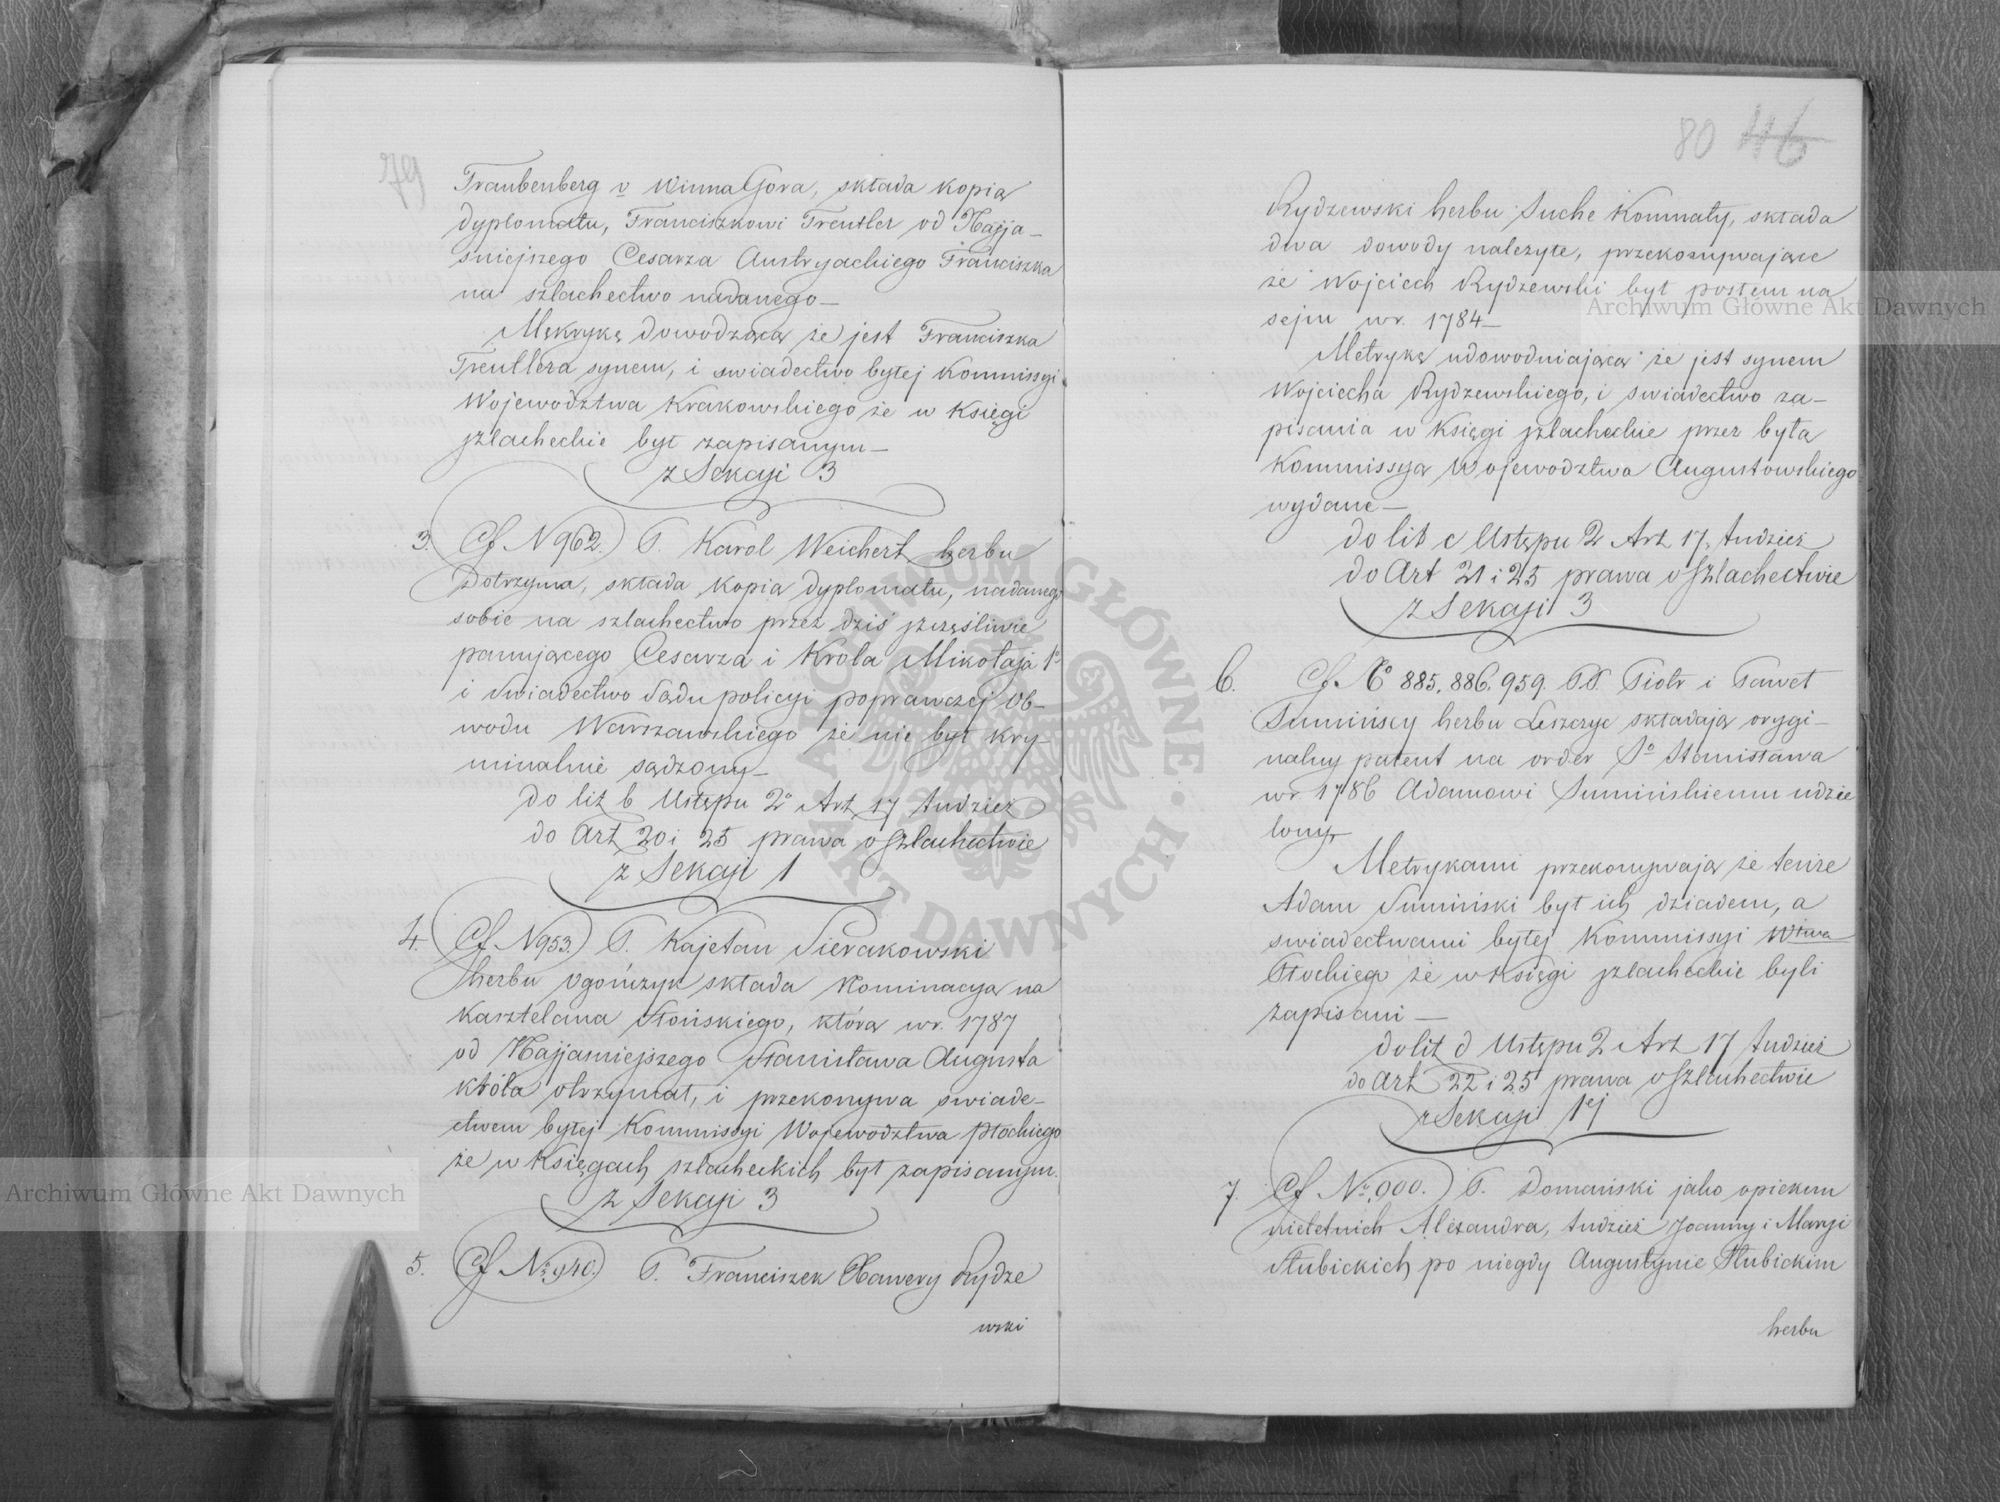 79
Traubenberg v Winna Gora, składa kopią
dyplomatu, Franciszkowi Treutler od Najja-
śniejszego Cesarza Austryackiego Franciszka
na szlachectwo nadanego-
Metrykę dowodzącą że jest Franciszka
Treutlera synem, i świadectwo byłej Kommissyi
Województwa Krakowskiego że w Księgi
szlacheckie był zapisanym-
z Sekcyi 3
3. Cf N 962. P. Karol Weichert herbu
Dotrzyma, składa kopią dyplomatu, nadanego
sobie na szlachectwo przez dziś szczęśliwie
panującego Cesarza i Króla Mikołaja 1o
i świadectwo Sądu policyi poprawczej Ob-
wodu Warszawskiego że nie był kry-
minalnie sądzony-
do lit b Ustępu 2o Art 17 tudzież
do Art 20 i 25 prawa o Szlachectwie
z Sekcyi 1
4. Cf N 953. P. Kajetan Sierakowski
herbu Ogończyk składa Nominacyą na
Kasztelana Słońskiego, którą w r. 1787
od Najjaśniejszego Stanisława Augusta
Króla otrzymał, i przekonywa świade-
ctwem byłej Kommissyi Województwa Płockiego
że w Księgach szlacheckich był zapisanym.
z Sekcyi 3
5. Cf No 940. P. Franciszek Xawery Rydze
wski
80 46
Rydzewski herbu Suche Komnaty, składa
dwa dowody należyte, przekonywające
że Wojciech Rydzewski był posłem na
sejm w r. 1784-
Metrykę udowodniającą że jest synem
Wojciecha Rydzewskiego, i świadectwo za-
pisania w Księgi szlacheckie przez byłą
Kommissyą Województwa Augustowskiego
wydane-
do lit c Ustępu 2 Art 17, tudzież
do Art 21 i 25 prawa o Szlachectwie
z Sekcyi 3
6. Cf No 885. 886. 959. P.P. Piotr i Paweł
Sumińscy herbu Leszczyc składają orygi-
nalny patent na order So Stanisława
w r 1786 Adamowi Sumińskiemu udzie
lony
Metrykami przekonywają że tenże
Adam Sumiński był ich dziadem, a
świadectwami byłej Kommissyi Wtwa
Płockiego że w Księgi szlacheckie byli
zapisani-
do lit d Ustępu 2 Art 17 tudzież
do Art 22 i 25 prawa o Szlachectwie
z Sekcyi 1ej
7. Cf No 900. P. Domański jako opiekun
nieletnich Alexandra, tudzież Joanny i Maryi
Słubickich po niegdy Augustynie Słubickim
herbu
Archiwum Główne Akt Dawnych
Archiwum Główne Akt Dawnych
ARCHIWUM GŁÓWNE AKT DAWNYCH